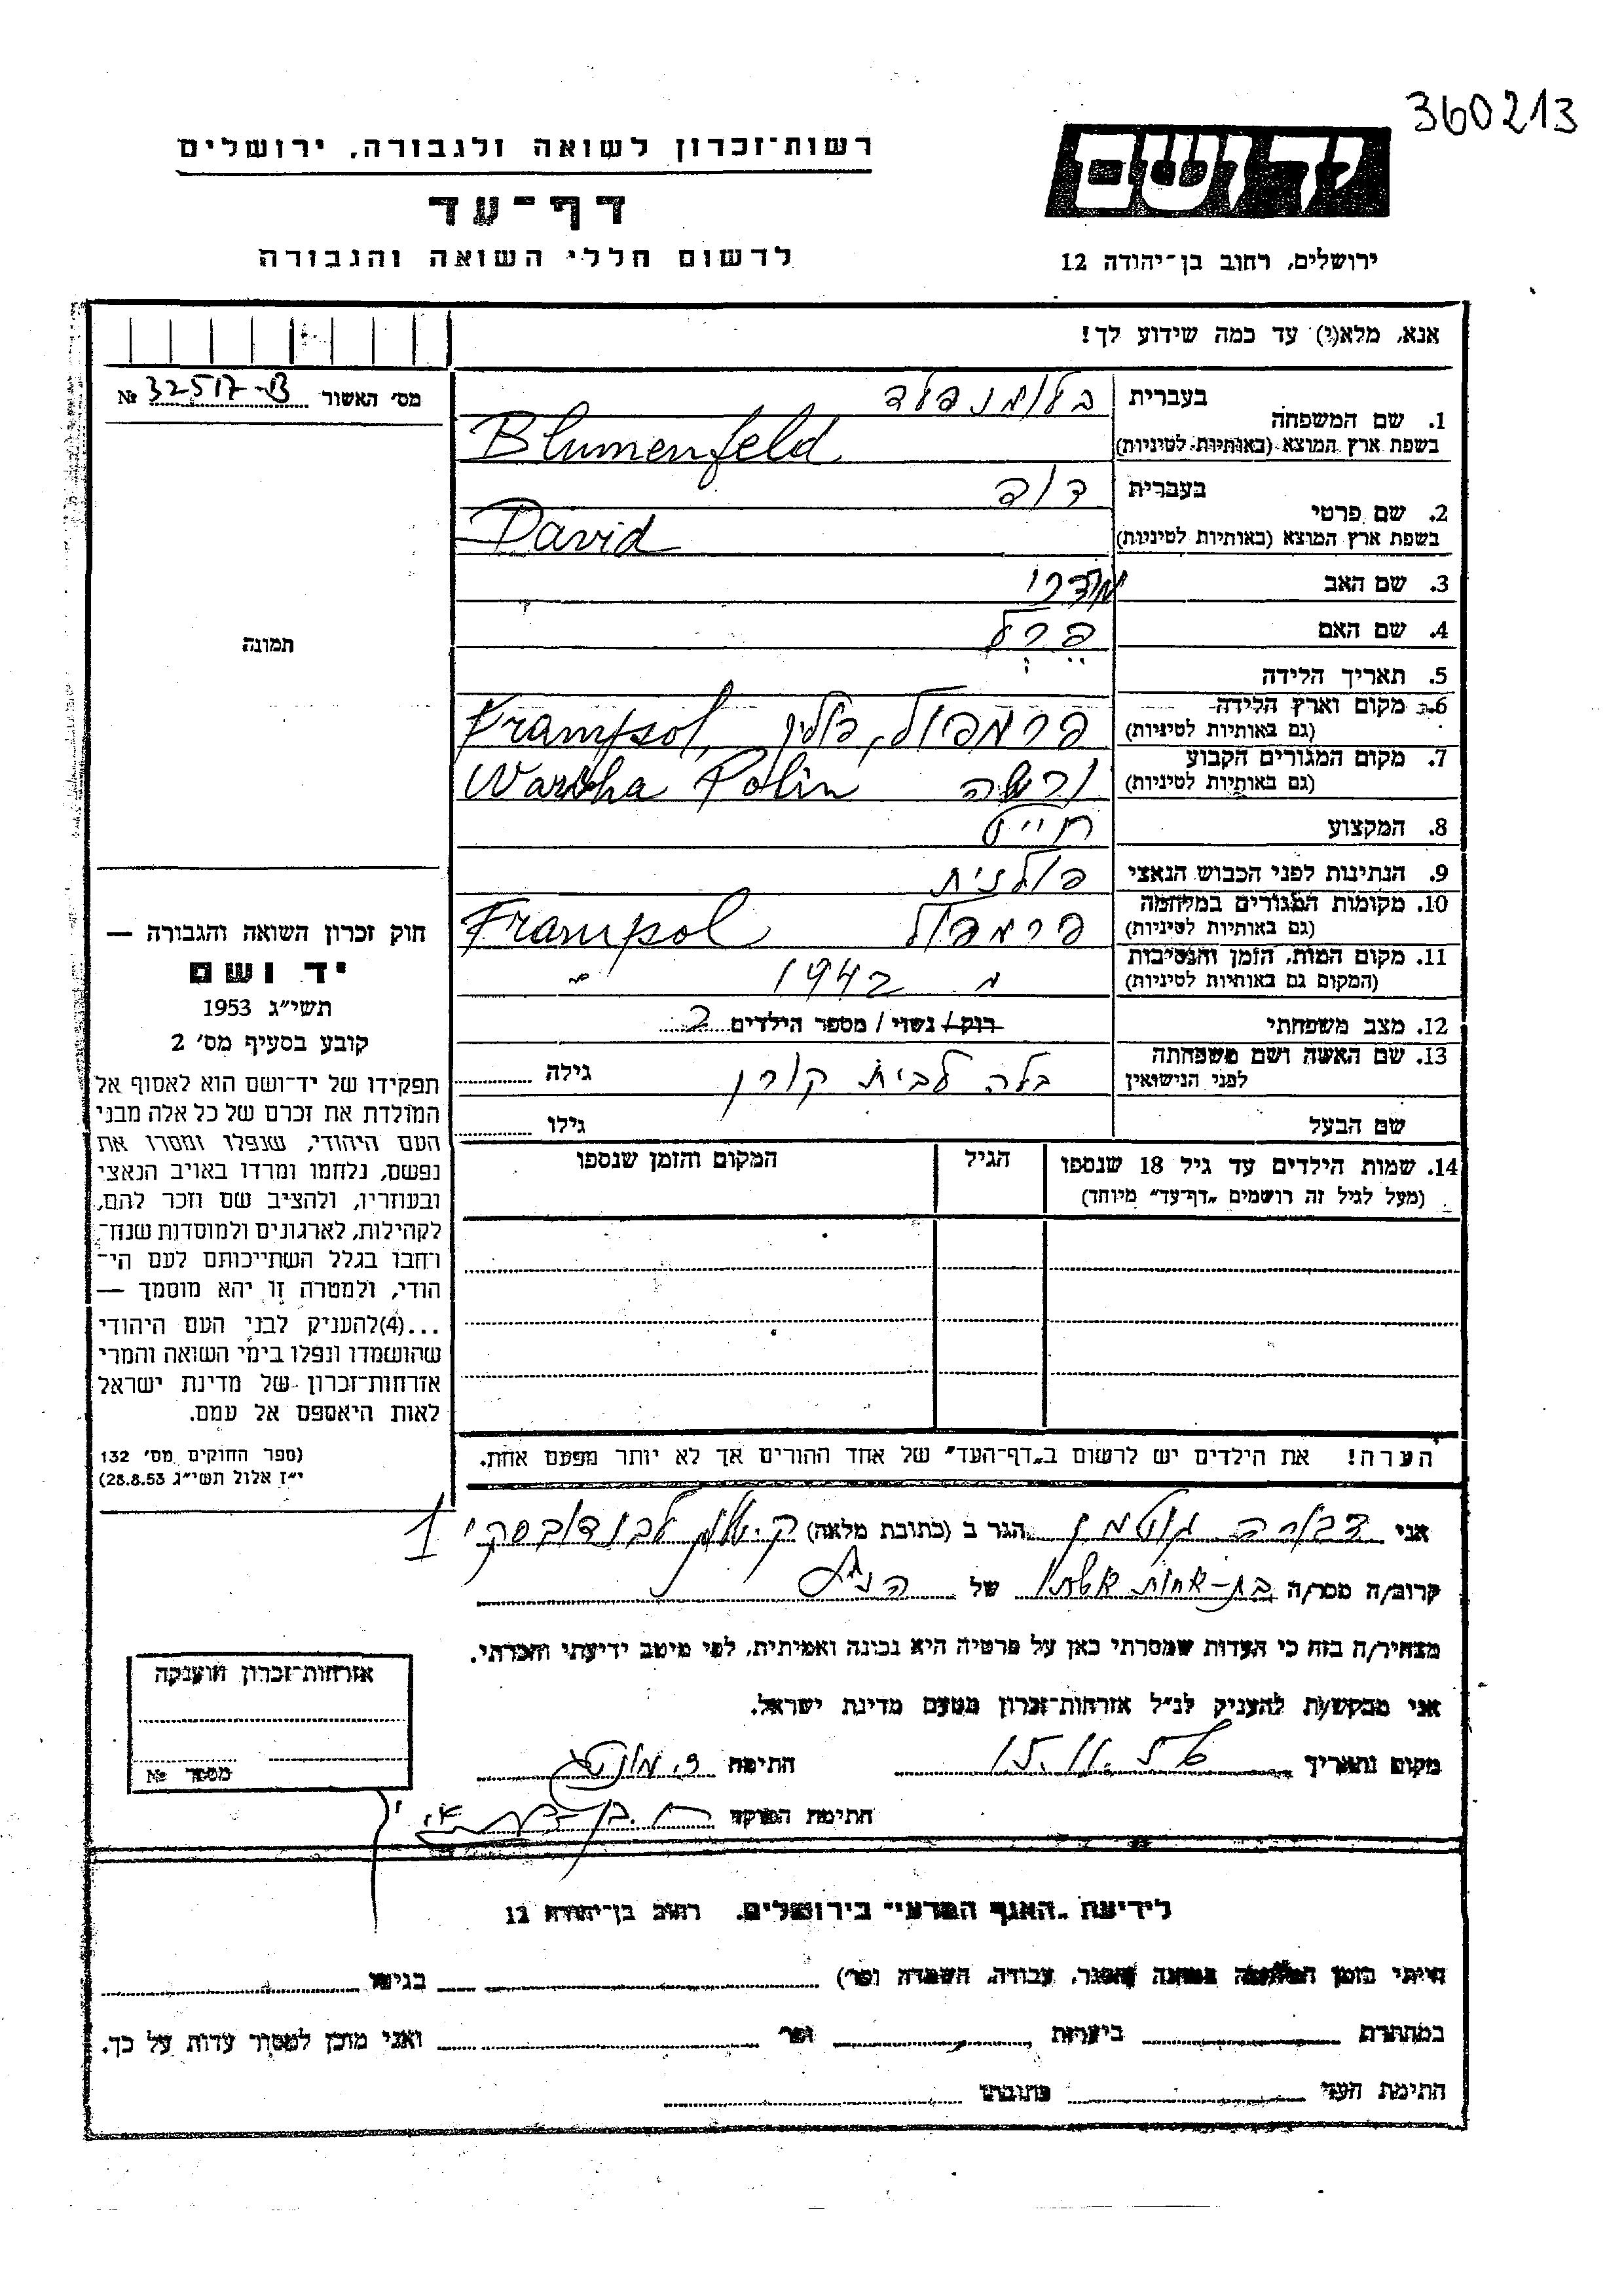 360213
יד ושם
ירושלים, רחוב בן־יהודה 12
רשות־זכרון לשואה ולגבורה, ירושלים
דף־עד
לרשום חללי השואה והגבורה
אנא, מלא(י) עד כמה שידוע לך!
מס׳ האשור № 32517-B
1. שם המשפחה
בעברית בלומנפלד
בשפת ארץ המוצא (באותיות לטיניות) Blumenfeld
2. שם פרטי
בעברית דוד
בשפת ארץ המוצא (באותיות לטיניות) David
3. שם האב
4. שם האם פרל
5. תאריך הלידה
6. מקום וארץ הלידה
(גם באותיות לטיניות) פרמפול, פולין Frampol,
7. מקום המגורים הקבוע
(גם באותיות לטיניות) ורשה Warsha Polin
8. המקצוע חייט
9. הנתינות לפני הכבוש הנאצי פולנית
10. מקומות המגורים במלחמה
(גם באותיות לטיניות) פרמפול Frampol
11. מקום המות, הזמן והנסיבות
(המקום גם באותיות לטיניות) 1942
12. מצב משפחתי רוק/ נשוי/ מספר הילדים 2
13. שם האשה ושם משפחתה
לפני הנישואין בלה לבית קורן גילה
שם הבעל גילו
14. שמות הילדים עד גיל 18 שנספו
(מעל לגיל זה רושמים „דף־עד״ מיוחד)
הגיל
המקום והזמן שנספו
הערה! את הילדים יש לרשום ב„דף־העד״ של אחד ההורים אך לא יותר מפעם אחת.
תמונה
חוק זכרון השואה והגבורה —
יד ושם
תשי״ג 1953
קובע בסעיף מס׳ 2
תפקידו של יד־ושם הוא לאסוף אל
המולדת את זכרם של כל אלה מבני
העם היהודי, שנפלו ומסרו את
נפשם, נלחמו ומרדו באויב הנאצי
ובעוזריו, ולהציב שם וזכר להם,
לקהילות, לארגונים ולמוסדות שנח־
רחבו בגלל השתייכותם לעם הי־
הודי, ולמטרה זו יהא מוסמך —
...(4)להעניק לבני העם היהודי
שהושמדו ונפלו בימי השואה והמרי
אזרחות־זכרון של מדינת ישראל
לאות היאספם אל עמם.
(ספר החוקים מס׳ 132
י״ז אלול תשי״ג 28.8.53)
אני דבורה הגר ב (כתובת מלאה)
קרוב/ה מכר/ה בת-אחות אשתו של הנ״ל
מצהיר/ה בזה כי העדות שמסרתי כאן על פרטיה היא נכונה ואמיתית, לפי מיטב ידיעתי והכרתי.
אני מבקש/ת להעניק לנ״ל אזרחות־זכרון מטעם מדינת ישראל.
מקום ותאריך חתימה
חתימת הפוקד
אזרחות־זכרון הוענקה
מספר №
לידיעת „האגף המדעי״ בירושלים, רחוב בן־יהודה 12
הייתי בזמן המלחמה במחנה (הסגר, עבודה, השמדה וכו׳) בגיטו
במחתרת ביערות וכו׳ ואני מוכן למסור עדות על כך.
חתימת העד כתובתו